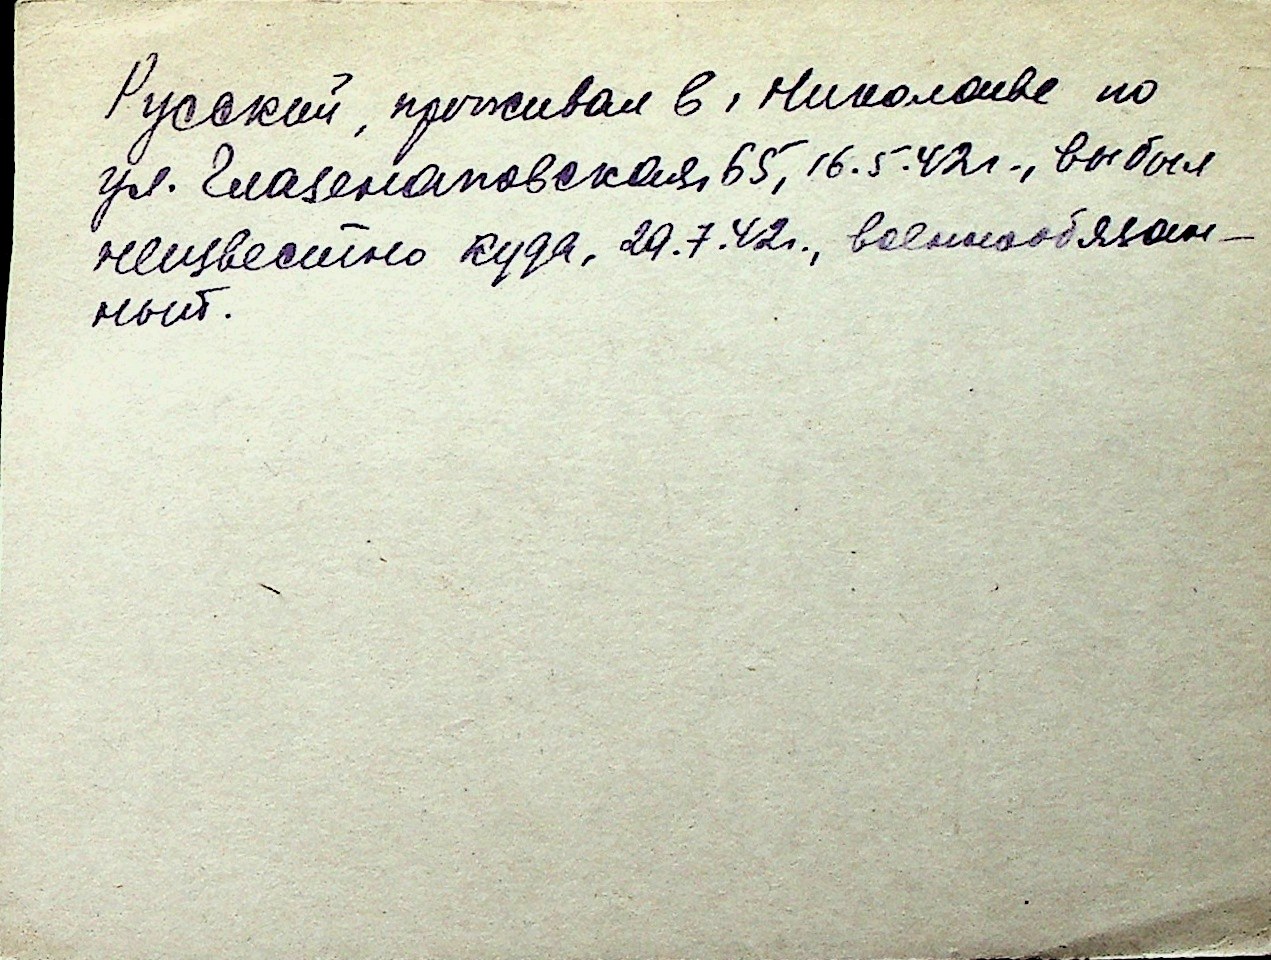 Русский, проживал в г. Николаеве по
ул. Глазенаповская, 65, 16.5.42г., выбыл
неизвестно куда, 29.7.42г., военнообязан-
ный.